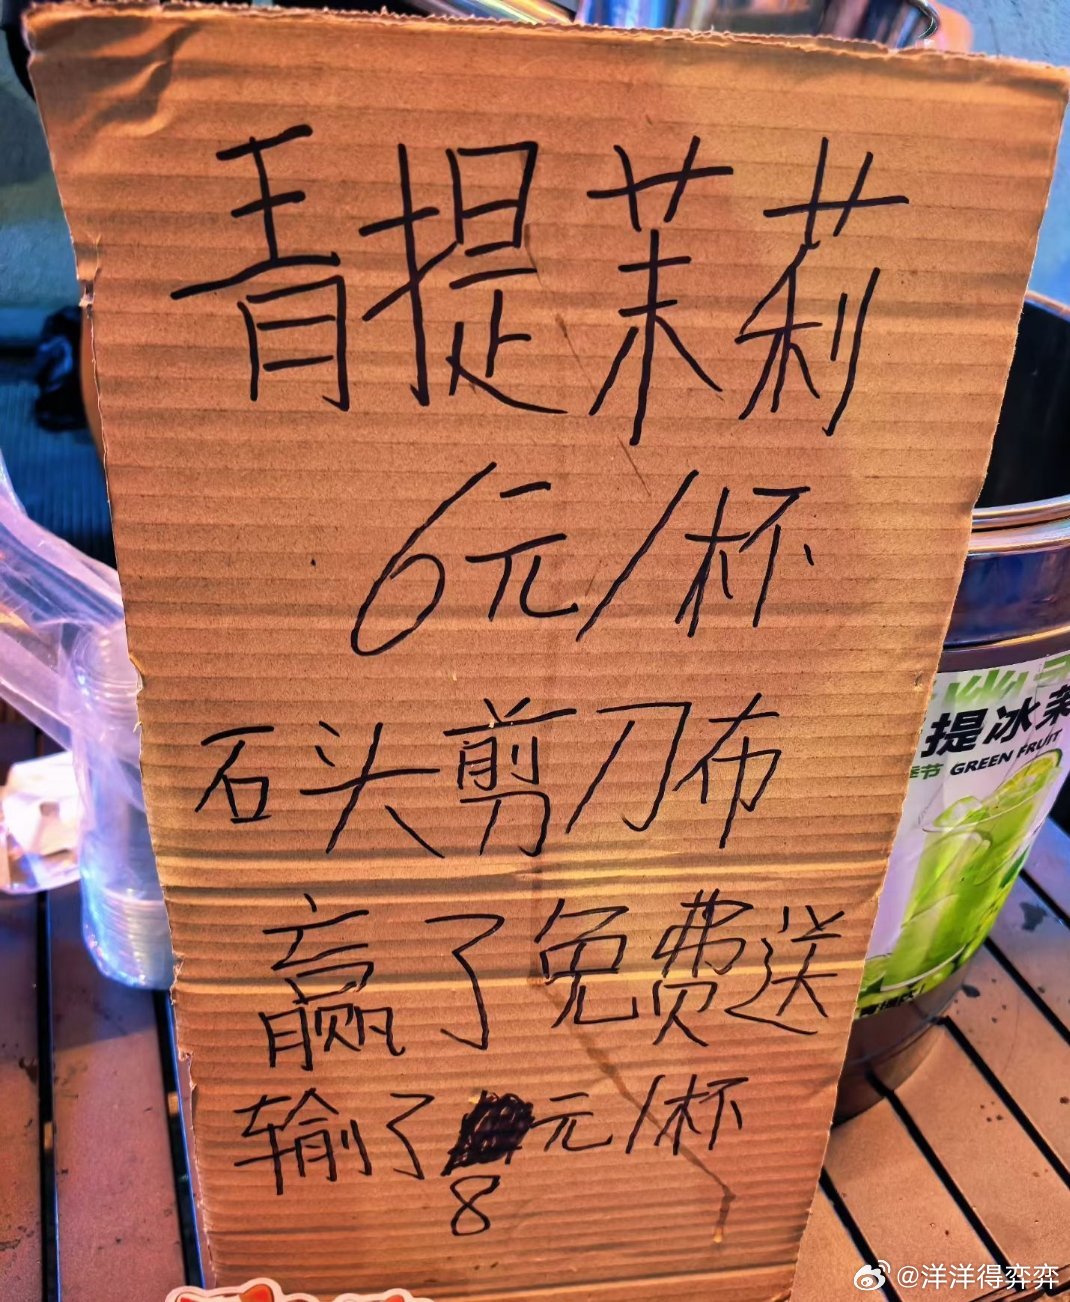 青提茉莉
6元/杯
石头剪刀布
赢了免费送
输了元/杯
8
提冰茉
季节 GREEN FRUIT
@洋洋得弈弈